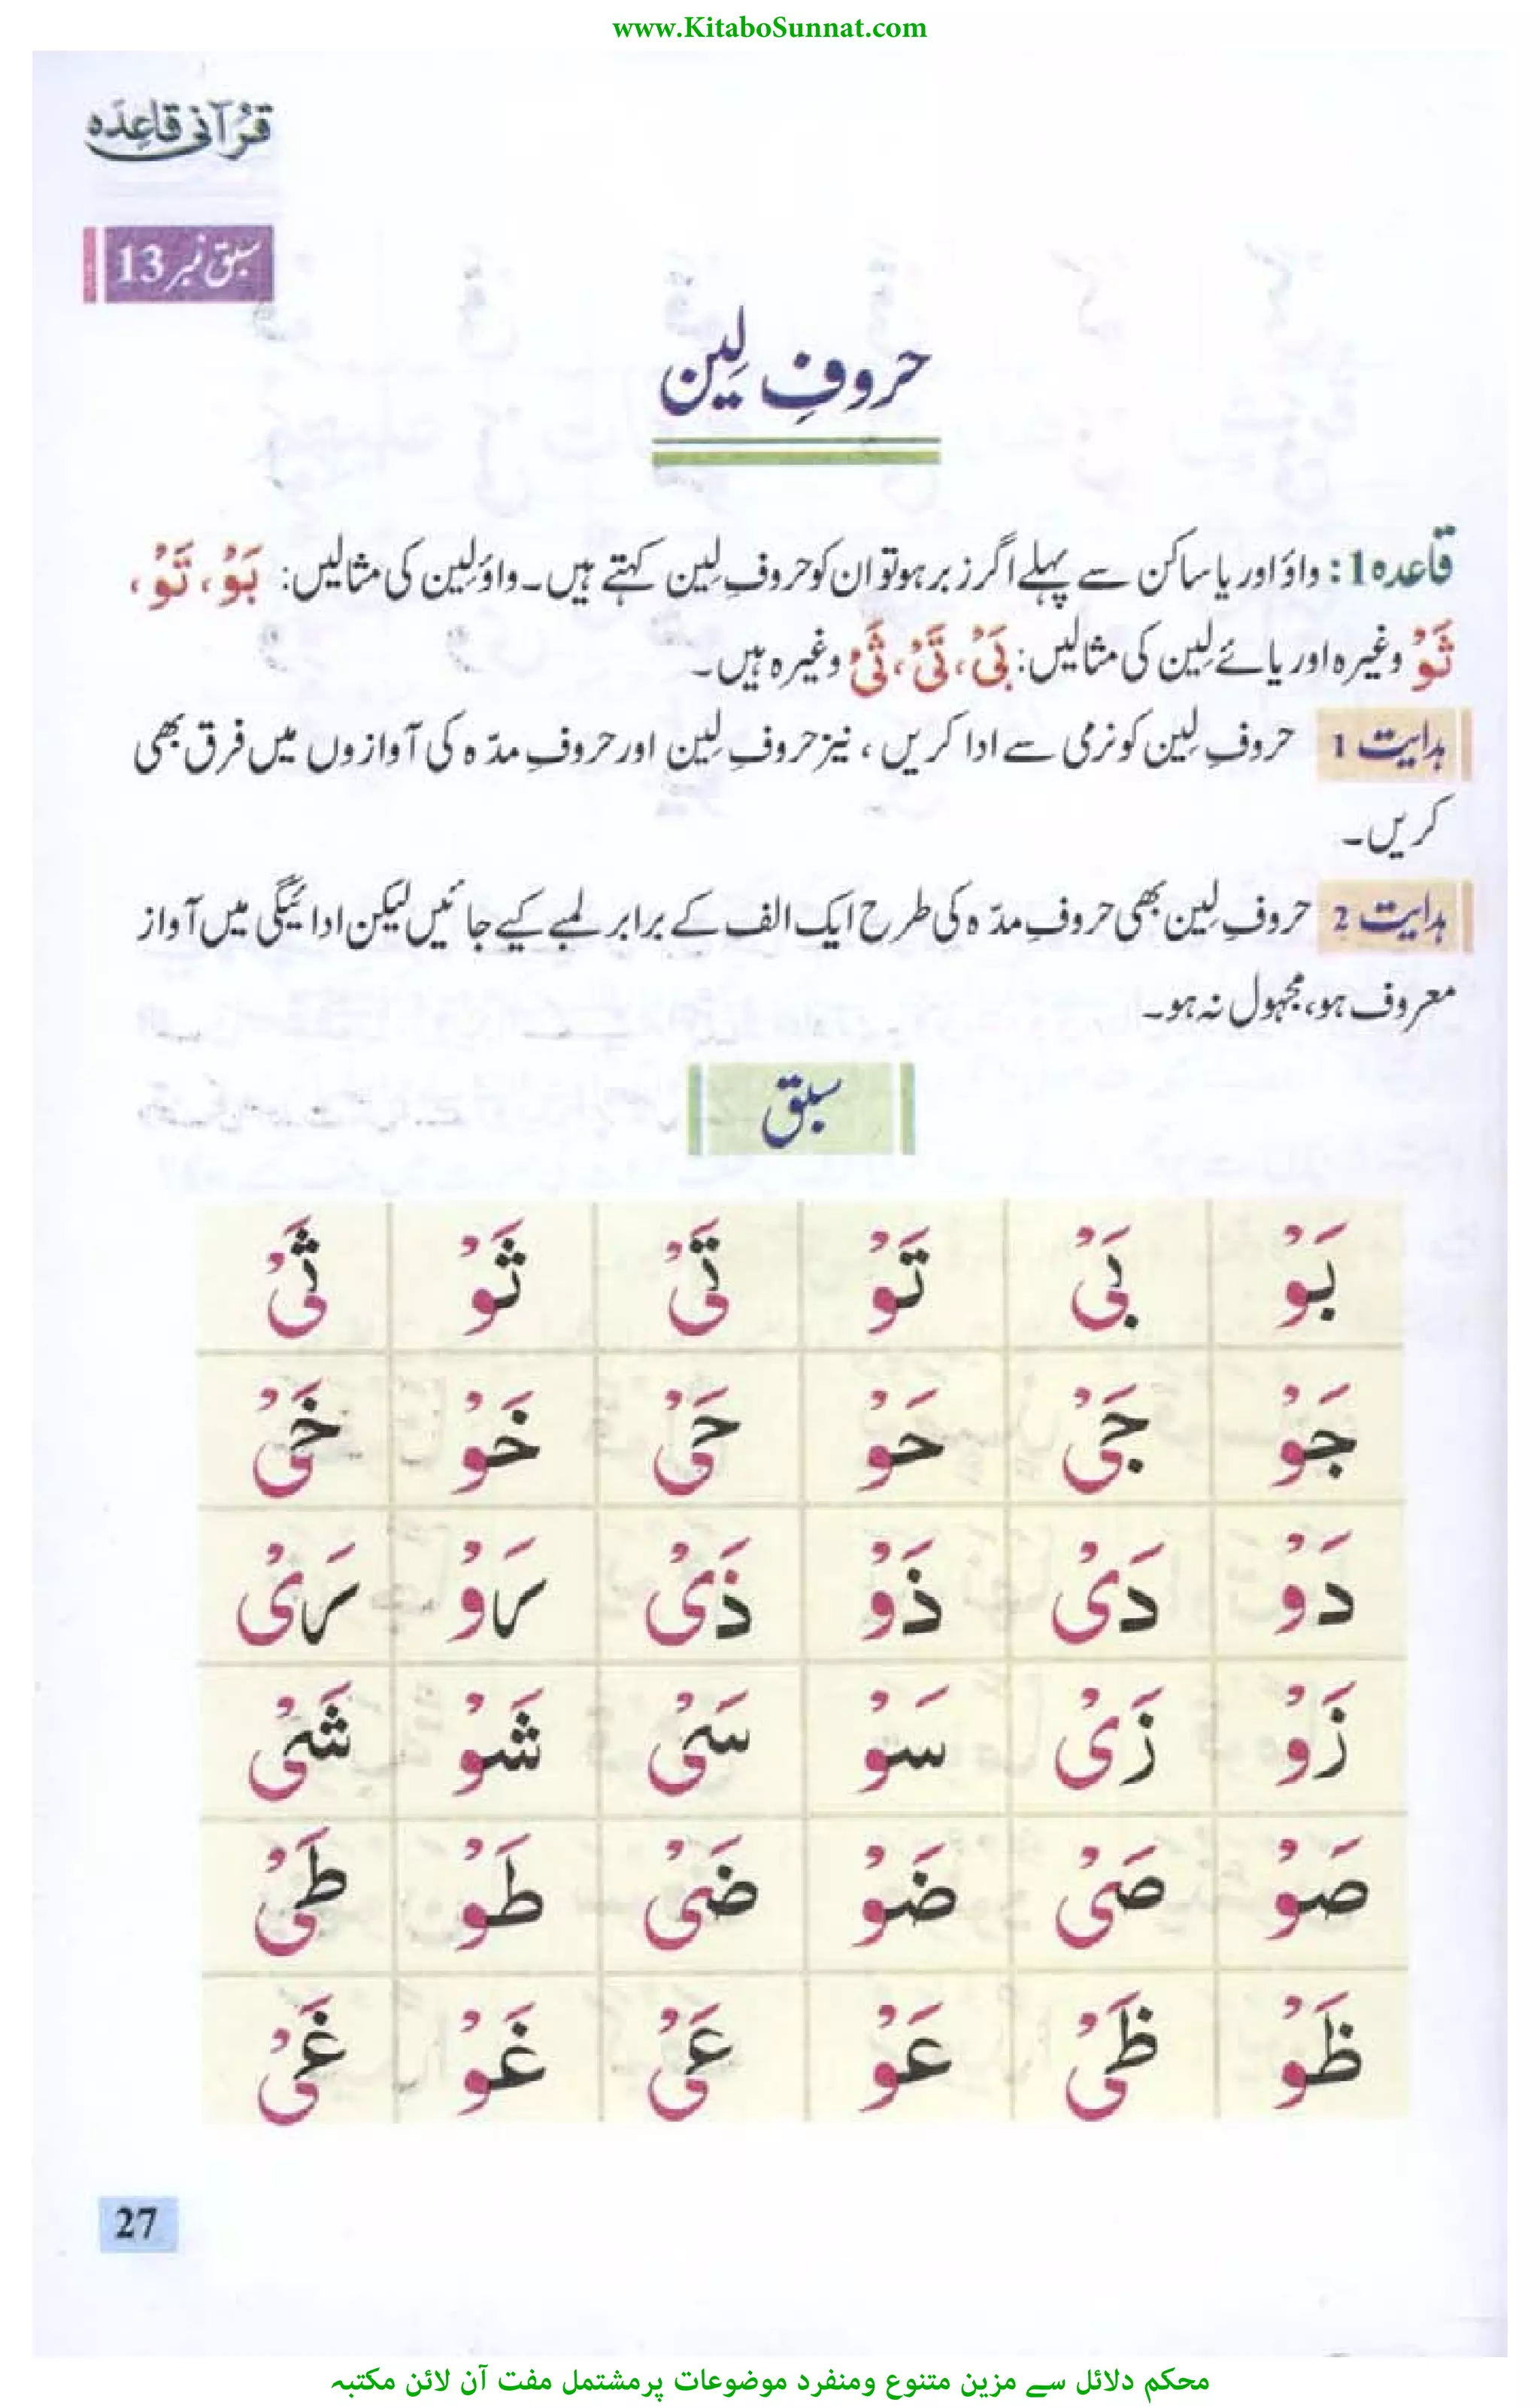 www.KitaboSunnat.com
قرآنی قاعِدَہ
سبق نمبر 13
حروفِ لِین
قاعدہ 1: واؤ اور یا ساکن سے پہلے اگر زبر ہو تو ان کو حروفِ لِین کہتے ہیں۔ واؤ لِین کی مثالیں: بَوْ، تَوْ،
ثَوْ وغیرہ اور یائے لِین کی مثالیں: بَیْ، تَیْ، ثَیْ وغیرہ ہیں۔
ہدایت 1 حروفِ لِین کو نرمی سے ادا کریں، نیز حروفِ لِین اور حروفِ مدّہ کی آوازوں میں فرق بھی
کریں۔
ہدایت 2 حروفِ لِین بھی حروفِ مدّہ کی طرح ایک الف کے برابر لمبے کیے جائیں لیکن ادائیگی میں آواز
معروف ہو، مجہول نہ ہو۔
سبق
بَوْ بَیْ تَوْ تَیْ ثَوْ ثَیْ
جَوْ جَیْ حَوْ حَیْ خَوْ خَیْ
دَوْ دَیْ ذَوْ ذَیْ رَوْ رَیْ
زَوْ زَیْ سَوْ سَیْ شَوْ شَیْ
صَوْ صَیْ ضَوْ ضَیْ طَوْ طَیْ
ظَوْ ظَیْ عَوْ عَیْ غَوْ غَیْ
27
محکم دلائل سے مزین متنوع ومنفرد موضوعات پرمشتمل مفت آن لائن مکتبہ